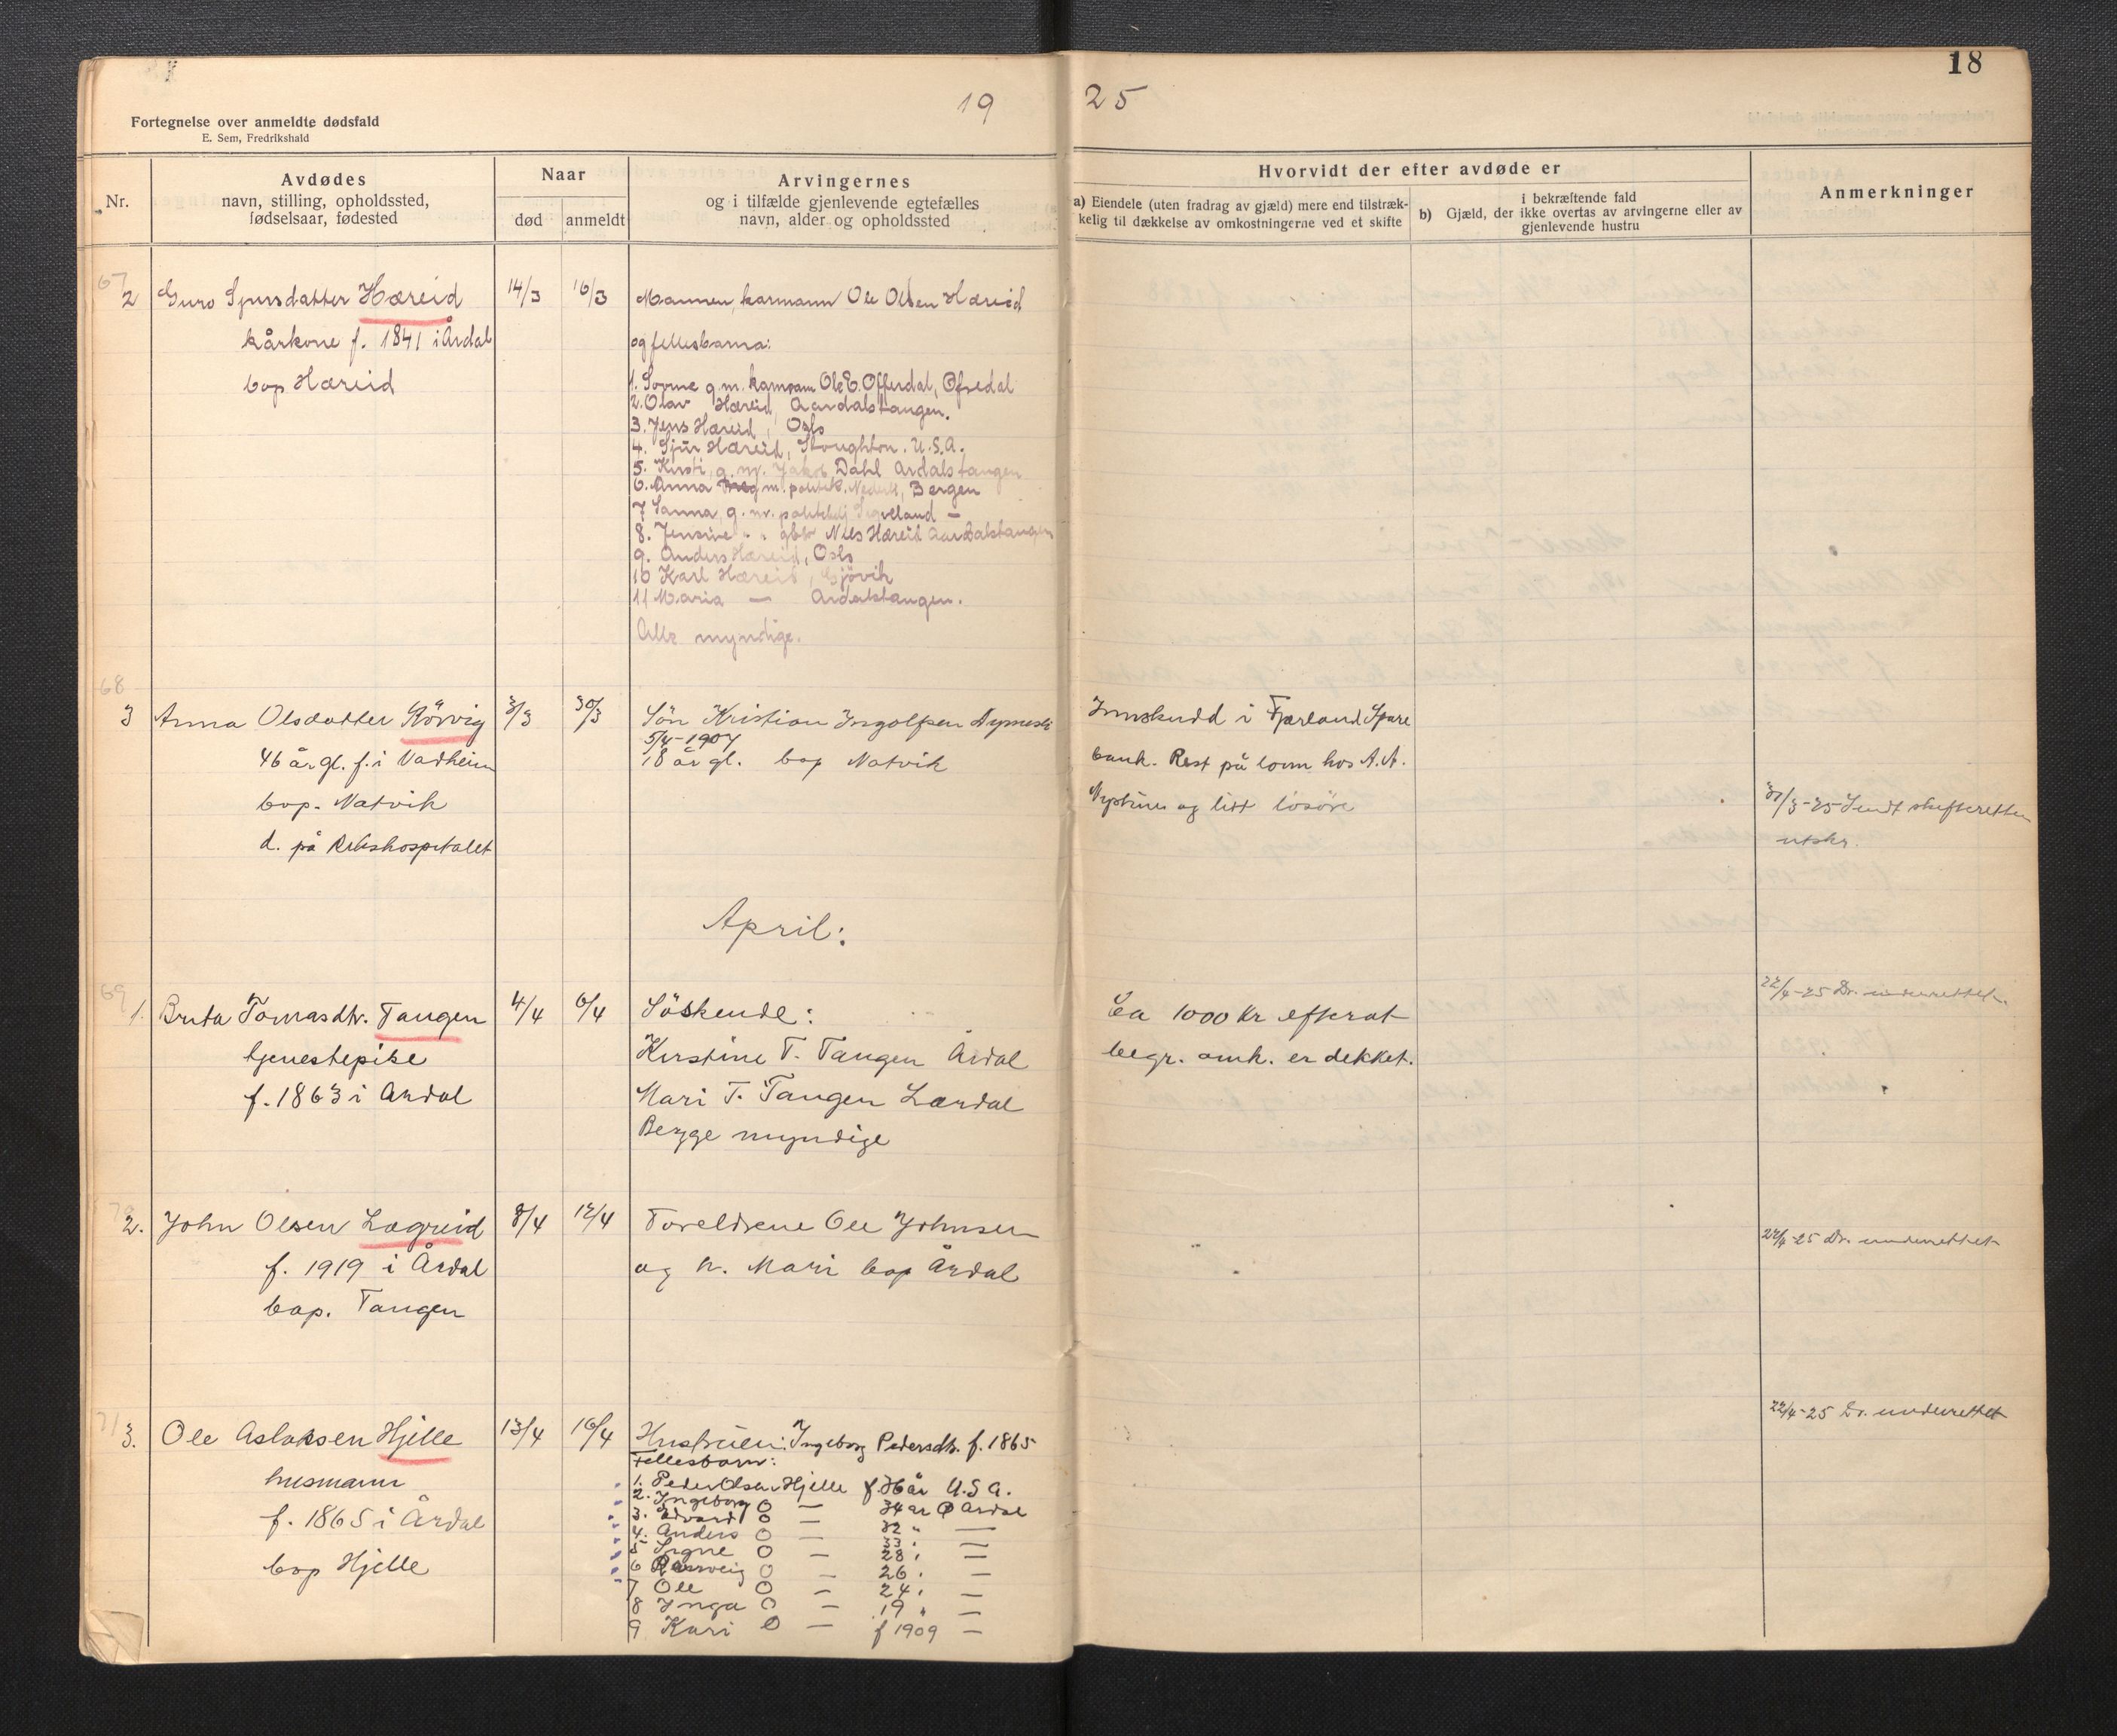 18
19 25
Fortegnelse over anmeldte dødsfald
E. Sem, Fredrikshald
Nr.
Avdødes
navn, stilling, opholdssted,
fødselsaar, fødested
Naar
død
anmeldt
Arvingernes
og i tilfælde gjenlevende egtefælles
navn, alder og opholdssted
Hvorvidt der efter avdøde er
a) Eiendele (uten fradrag av gjæld) mere end tilstræk-
kelig til dækkelse av omkostningerne ved et skifte
i bekræftende fald
b) Gjæld, der ikke overtas av arvingerne eller av
gjenlevende hustru
Anmerkninger
67
2 Guro Sjursdatter Hæreid 14/3 16/3 Mannen, karmann Ole Olsen Hæreid
kårkone f. 1841 i Årdal
bop Hæreid
og fellesbarna:
1. g.m. Ole E. Offerdal, Ofredal
2. Olav Hæreid, Aardalstangen.
3. Jens Hæreid, Oslo
4. Sjur Hæreid, Stoughton. U.S.A.
5. Kirsti, g.m. Jakob Dahl Ardalstangen
6. Anna m. Bergen
7 Sanna, g.m. —
8. Jensine " " gbr Nils Hæreid Aardalstangen
9. Anders Hæreid, Oslo
10 Karl Hæreid, Gjövik
11 Maria — Ardalstangen.
Alle myndige.
68
3 Anna Olsdatter Rörvig 3/3 30/3 Sön Kristian Ingolfsen
46 år gl. f. i Vadheim
bop. Natvik
d. på Rikshospitalet
5/4-1907
18 år gl. bop Natvik
Innskudd i Fjærland Spare
bank. Rest på lovn hos A.A.
og litt lösöre
31/3-25 Sendt skifteretten
utskr.
April:
69
1. Brita Tomasdtr. Tangen 4/4 6/4 Söskende:
tjenestepike
f. 1863 i Ardal
Kirstine T. Tangen Årdal
Mari T. Tangen Lærdal
Begge myndige
Ca 1000 Kr efterat
begr. omk. er dekket.
22/4-25 Dr. underrettet.
70
2. John Olsen Lægreid 8/4 12/4 Foreldrene Ole Johnsen
f. 1919 i Årdal
bop. Tangen
og h. Mari bop Årdal
22/4-25 Dr. underrettet
71
3. Ole Aslaksen Hjelle 13/4 16/4 Hustruen: Ingeborg Pedersdtr. f. 1865
husmann
f. 1865 i Årdal
bop Hjelle
Fellesbarn:
1. Peder Olsen Hjelle 36 år U.S.A.
2. Ingeborg O — 34 år Årdal
3. Edvard O — 32 " —
4. Anders O — 33 " —
5 Signe O — 28 " —
6 O — 26 " —
7 Ole O — 24 " —
8 Inga O — 19 " —
9 Kari O — f 1909 —
22/4-25 Dr. underrettet